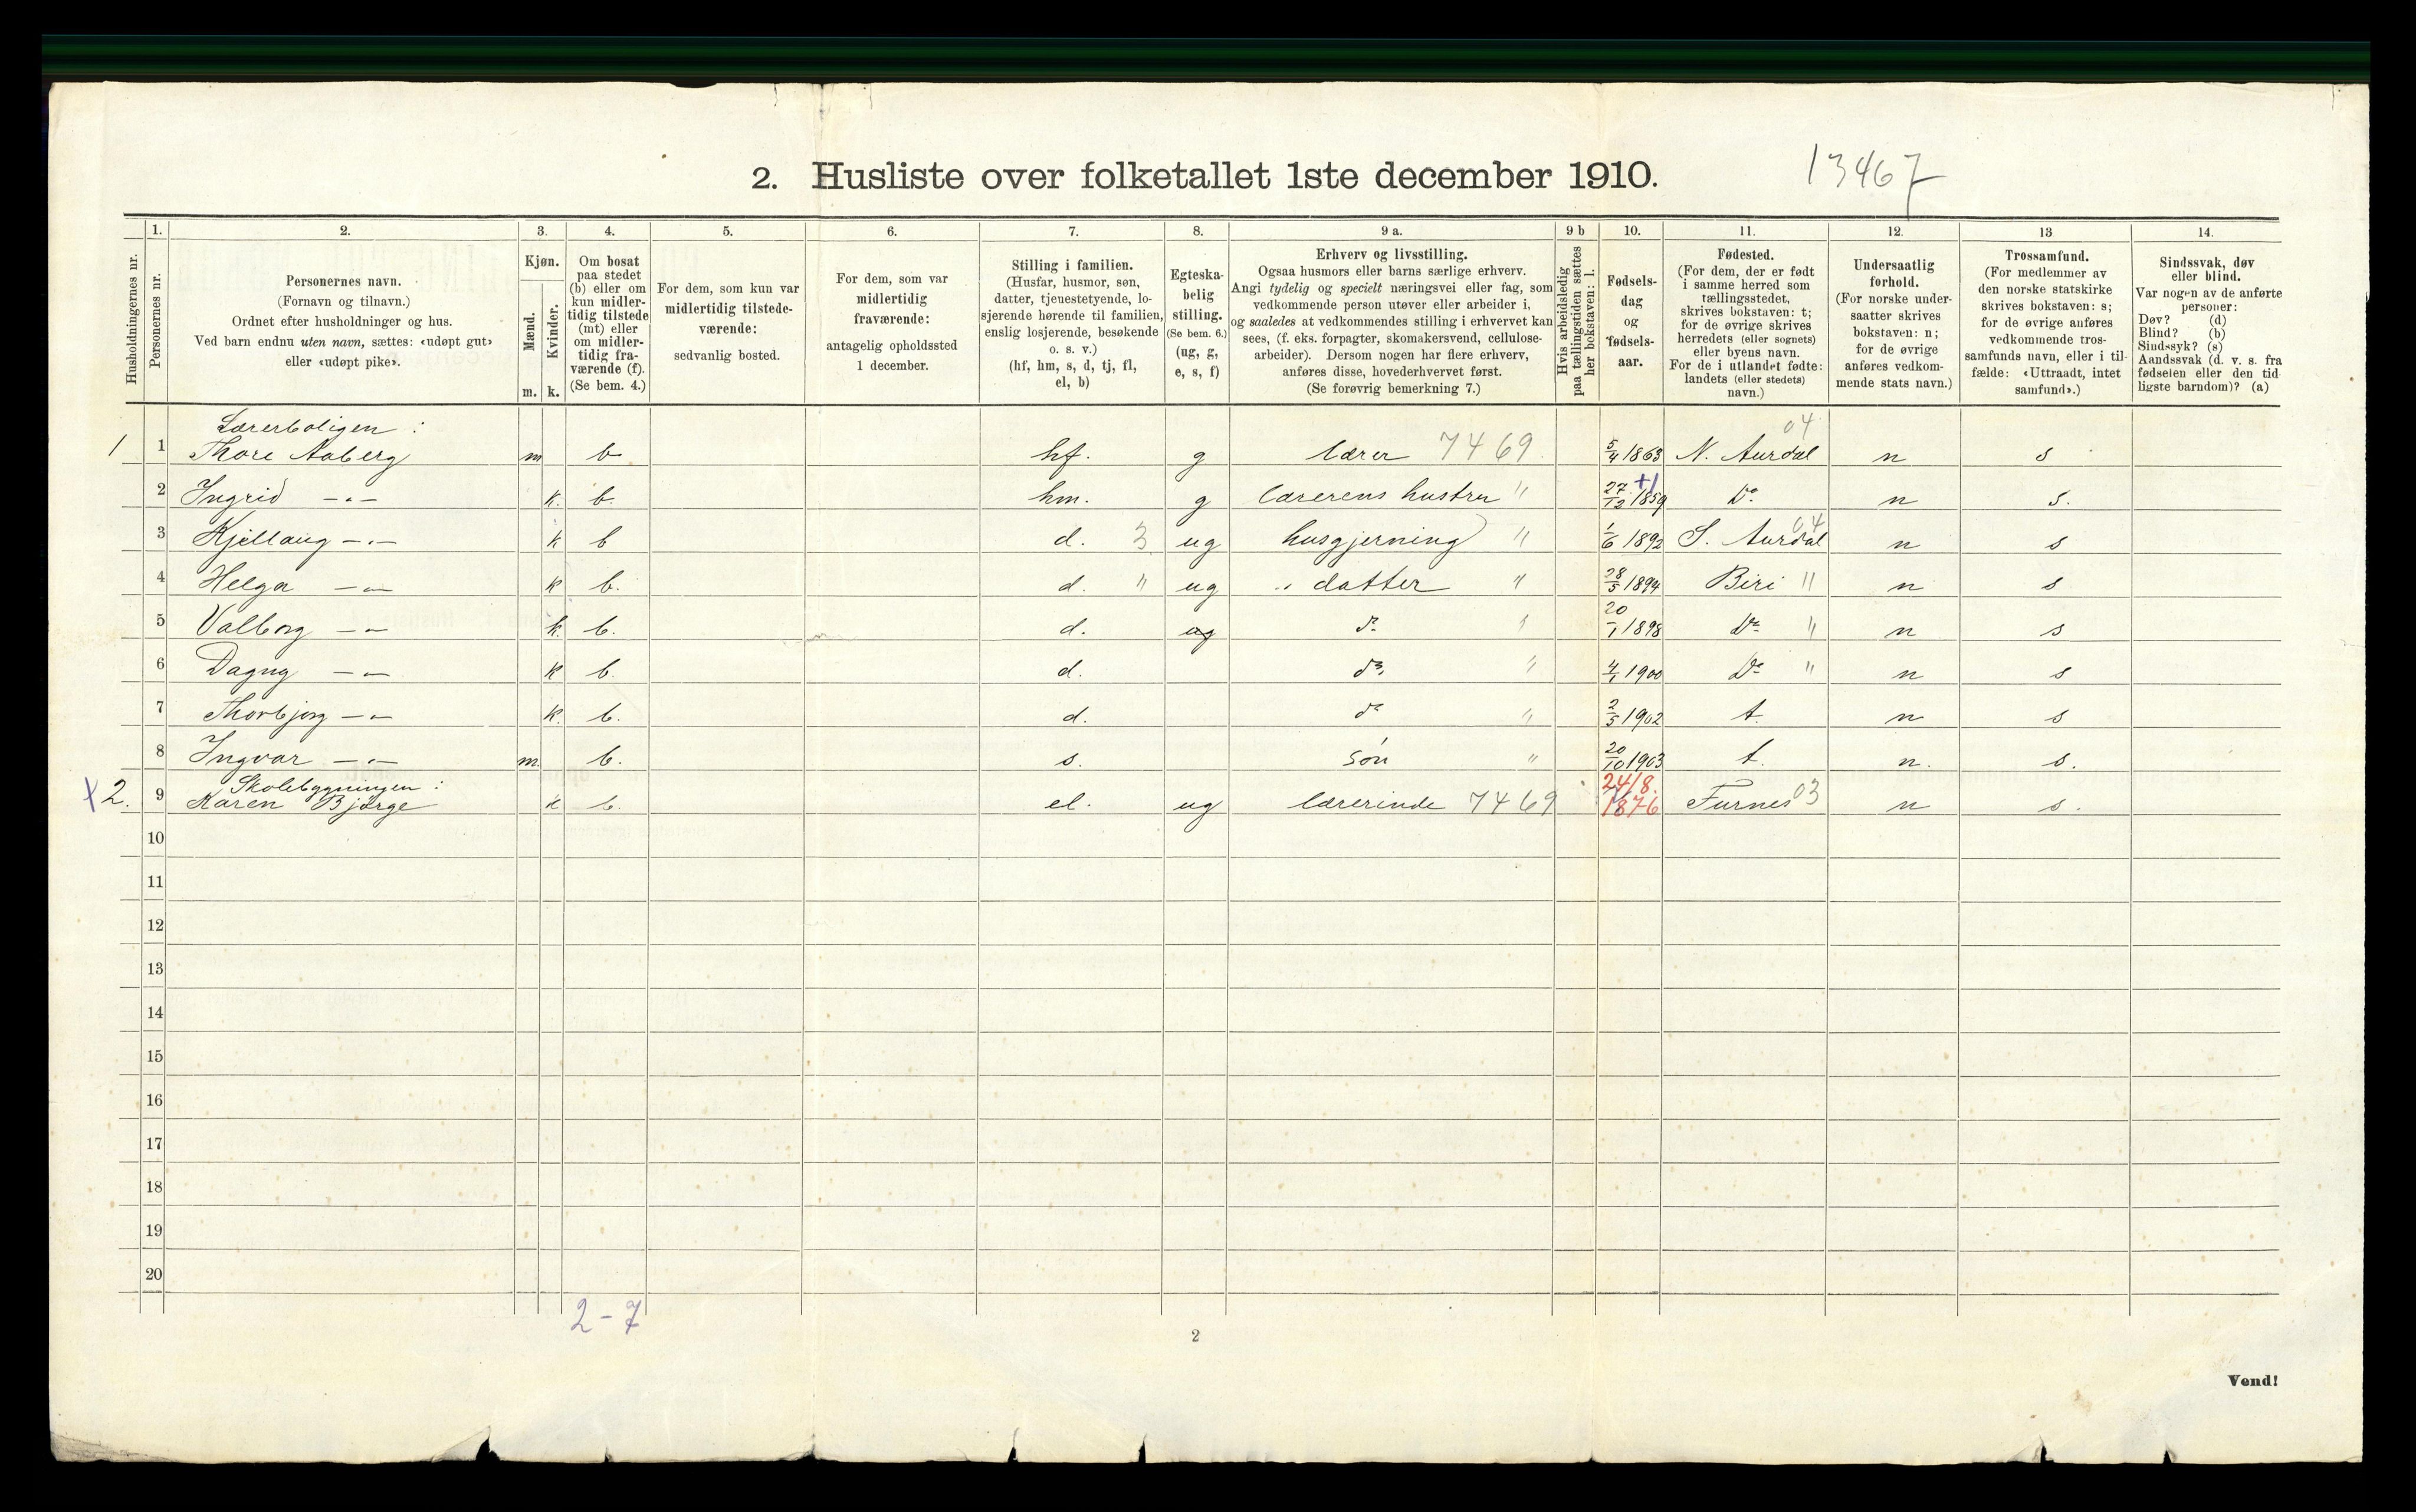 2. Husliste over folketallet 1ste december 1910.
13467
Husholdningernes nr.
1.
Personernes nr.
2.
Personernes navn.
(Fornavn og tilnavn.)
Ordnet efter husholdninger og hus.
Ved barn endnu uten navn, sættes: «udøpt gut»
eller «udøpt pike».
3.
Kjøn.
Mænd.
Kvinder.
m. k.
4.
Om bosat
paa stedet
(b) eller om
kun midler-
tidig tilstede
(mt) eller
om midler-
tidig fra-
værende (f).
(Se bem. 4.)
5.
For dem, som kun var
midlertidig tilstede-
værende:
sedvanlig bosted.
6.
For dem, som var
midlertidig
fraværende:
antagelig opholdssted
1 december.
7.
Stilling i familien.
(Husfar, husmor, søn,
datter, tjenestetyende, lo-
sjerende hørende til familien,
enslig losjerende, besøkende
o. s. v.)
(hf, hm, s, d, tj, fl,
el, b)
8.
Egteska-
belig
stilling.
(Se bem. 6.)
(ug, g,
e, s, f)
9 a.
Erhverv og livsstilling.
Ogsaa husmors eller barns særlige erhverv.
Angi tydelig og specielt næringsvei eller fag, som
vedkommende person utøver eller arbeider i,
og saaledes at vedkommendes stilling i erhvervet kan
sees, (f. eks. forpagter, skomakersvend, cellulose-
arbeider). Dersom nogen har flere erhverv,
anføres disse, hovederhvervet først.
(Se forøvrig bemerkning 7.)
9 b
Hvis arbeidsledig
paa tællingstiden sættes
her bokstaven: l.
10.
Fødsels-
dag
og
fødsels-
aar.
11.
Fødested.
(For dem, der er født
i samme herred som
tællingsstedet,
skrives bokstaven: t;
for de øvrige skrives
herredets (eller sognets)
eller byens navn.
For de i utlandet fødte:
landets (eller stedets)
navn.)
12.
Undersaatlig
forhold.
(For norske under-
saatter skrives
bokstaven: n;
for de øvrige
anføres vedkom-
mende stats navn.)
13
Trossamfund.
(For medlemmer av
den norske statskirke
skrives bokstaven: s;
for de øvrige anføres
vedkommende tros-
samfunds navn, eller i til-
fælde: «Uttraadt, intet
samfund».)
14.
Sindssvak, døv
eller blind.
Var nogen av de anførte
personer:
Døv? (d)
Blind? (b)
Sindssyk? (s)
Aandssvak (d. v. s. fra
fødselen eller den tid-
ligste barndom)? (a)
Lærerboligen :
1 1 Thore Aaberg m b hf. g lærer 7469 5/4 1863 N. Aurdal 04 n s
2 Ingrid -„- k. b. hm. g lærerens hustru " 27/12 1859 Do n s.
3 Kjellaug -„- k b d. 3 ug husgjerning " 1/6 1892 S. Aurdal 04 n s
4 Helga -„- k b. d. " ug „ datter " 28/5 1894 Biri " n s
5 Valborg -„- k. b. d. ug do " 20/1 1898 Do " n s
6 Dagny -„- k b. d. do " 4/1 1900 Do " n s
7 Thorbjørg -„- k. b. d. do " 2/5 1902 t. n s
8 Ingvar -„- m. b. s. søn " 20/10 1903 t. n. s.
Skolebygningen :
x 2. 9 Karen Bjørge k b. el. ug lærerinde 7469 24/8. 1876 Furnes 03 n s.
10
11
12
13
14
15
16
17
18
19
20
2-7
2
Vend!